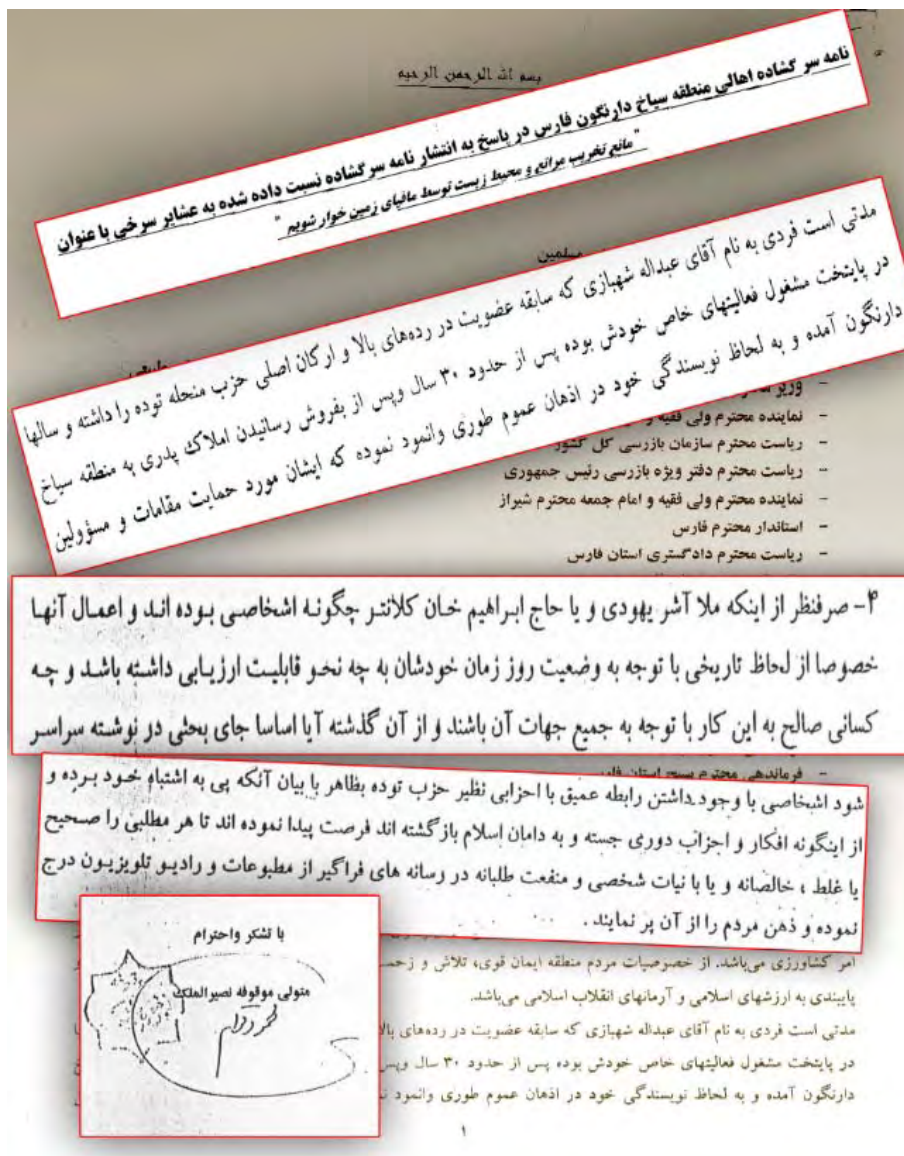 بسم الله الرحمن الرحیم
نامه سر گشاده اهالی منطقه سیاخ دارنگون فارس در پاسخ به انتشار نامه سر گشاده نسبت داده شده به عشایر سرخی با عنوان
"مانع تخریب مراتع و محیط زیست توسط مافیای زمین خوار شویم"
مسلمین
مدتی است فردی به نام آقای عبداله شهبازی که سابقه عضویت در رده‌های بالا و ارکان اصلی حزب منحله توده را داشته و سالها
در پایتخت مشغول فعالیتهای خاص خودش بوده پس از حدود ۳۰ سال وپس از بفروش رسانیدن املاک پدری به منطقه سیاخ
دارنگون آمده و به لحاظ نویسندگی خود در اذهان عموم طوری وانمود نموده که ایشان مورد حمایت مقامات و مسؤولین
- وزیر
- نماینده محترم ولی فقیه و
- ریاست محترم سازمان بازرسی کل کشور
- ریاست محترم دفتر ویژه بازرسی رئیس جمهوری
- نماینده محترم ولی فقیه و امام جمعه محترم شیراز
- استاندار محترم فارس
- ریاست محترم دادگستری استان فارس
۴- صرفنظر از اینکه ملا آشر یهودی و یا حاج ابراهیم خان کلانتر چگونه اشخاصی بوده اند و اعمال آنها
خصوصا از لحاظ تاریخی با توجه به وضعیت روز زمان خودشان به چه نحو قابلیت ارزیابی داشته باشد و چه
کسانی صالح به این کار با توجه به جمیع جهات آن باشند و از آن گذشته آیا اساسا جای بحثی در نوشته سراسر
- فرماندهی محترم بسیج استان فارس
شود اشخاصی با وجود داشتن رابطه عمیق با احزابی نظیر حزب توده بظاهر با بیان آنکه پی به اشتباه خود برده و
از اینگونه افکار و احزاب دوری جسته و به دامان اسلام بازگشته اند فرصت پیدا نموده اند تا هر مطلبی را صحیح
یا غلط ، خالصانه و یا با نیات شخصی و منفعت طلبانه در رسانه های فراگیر از مطبوعات و رادیو تلویزیون درج
نموده و ذهن مردم را از آن پر نمایند .
با تشکر واحترام
متولی موقوفه نصیرالملک
امر کشاورزی می‌باشد. از خصوصیات مردم منطقه ایمان قوی، تلاش و
پایبندی به ارزشهای اسلامی و آرمانهای انقلاب اسلامی می‌باشد.
مدتی است فردی به نام آقای عبداله شهبازی که سابقه عضویت در رده‌های
در پایتخت مشغول فعالیتهای خاص خودش بوده پس از حدود ۳۰ سال وپس
دارنگون آمده و به لحاظ نویسندگی خود در اذهان عموم طوری وانمود
۱